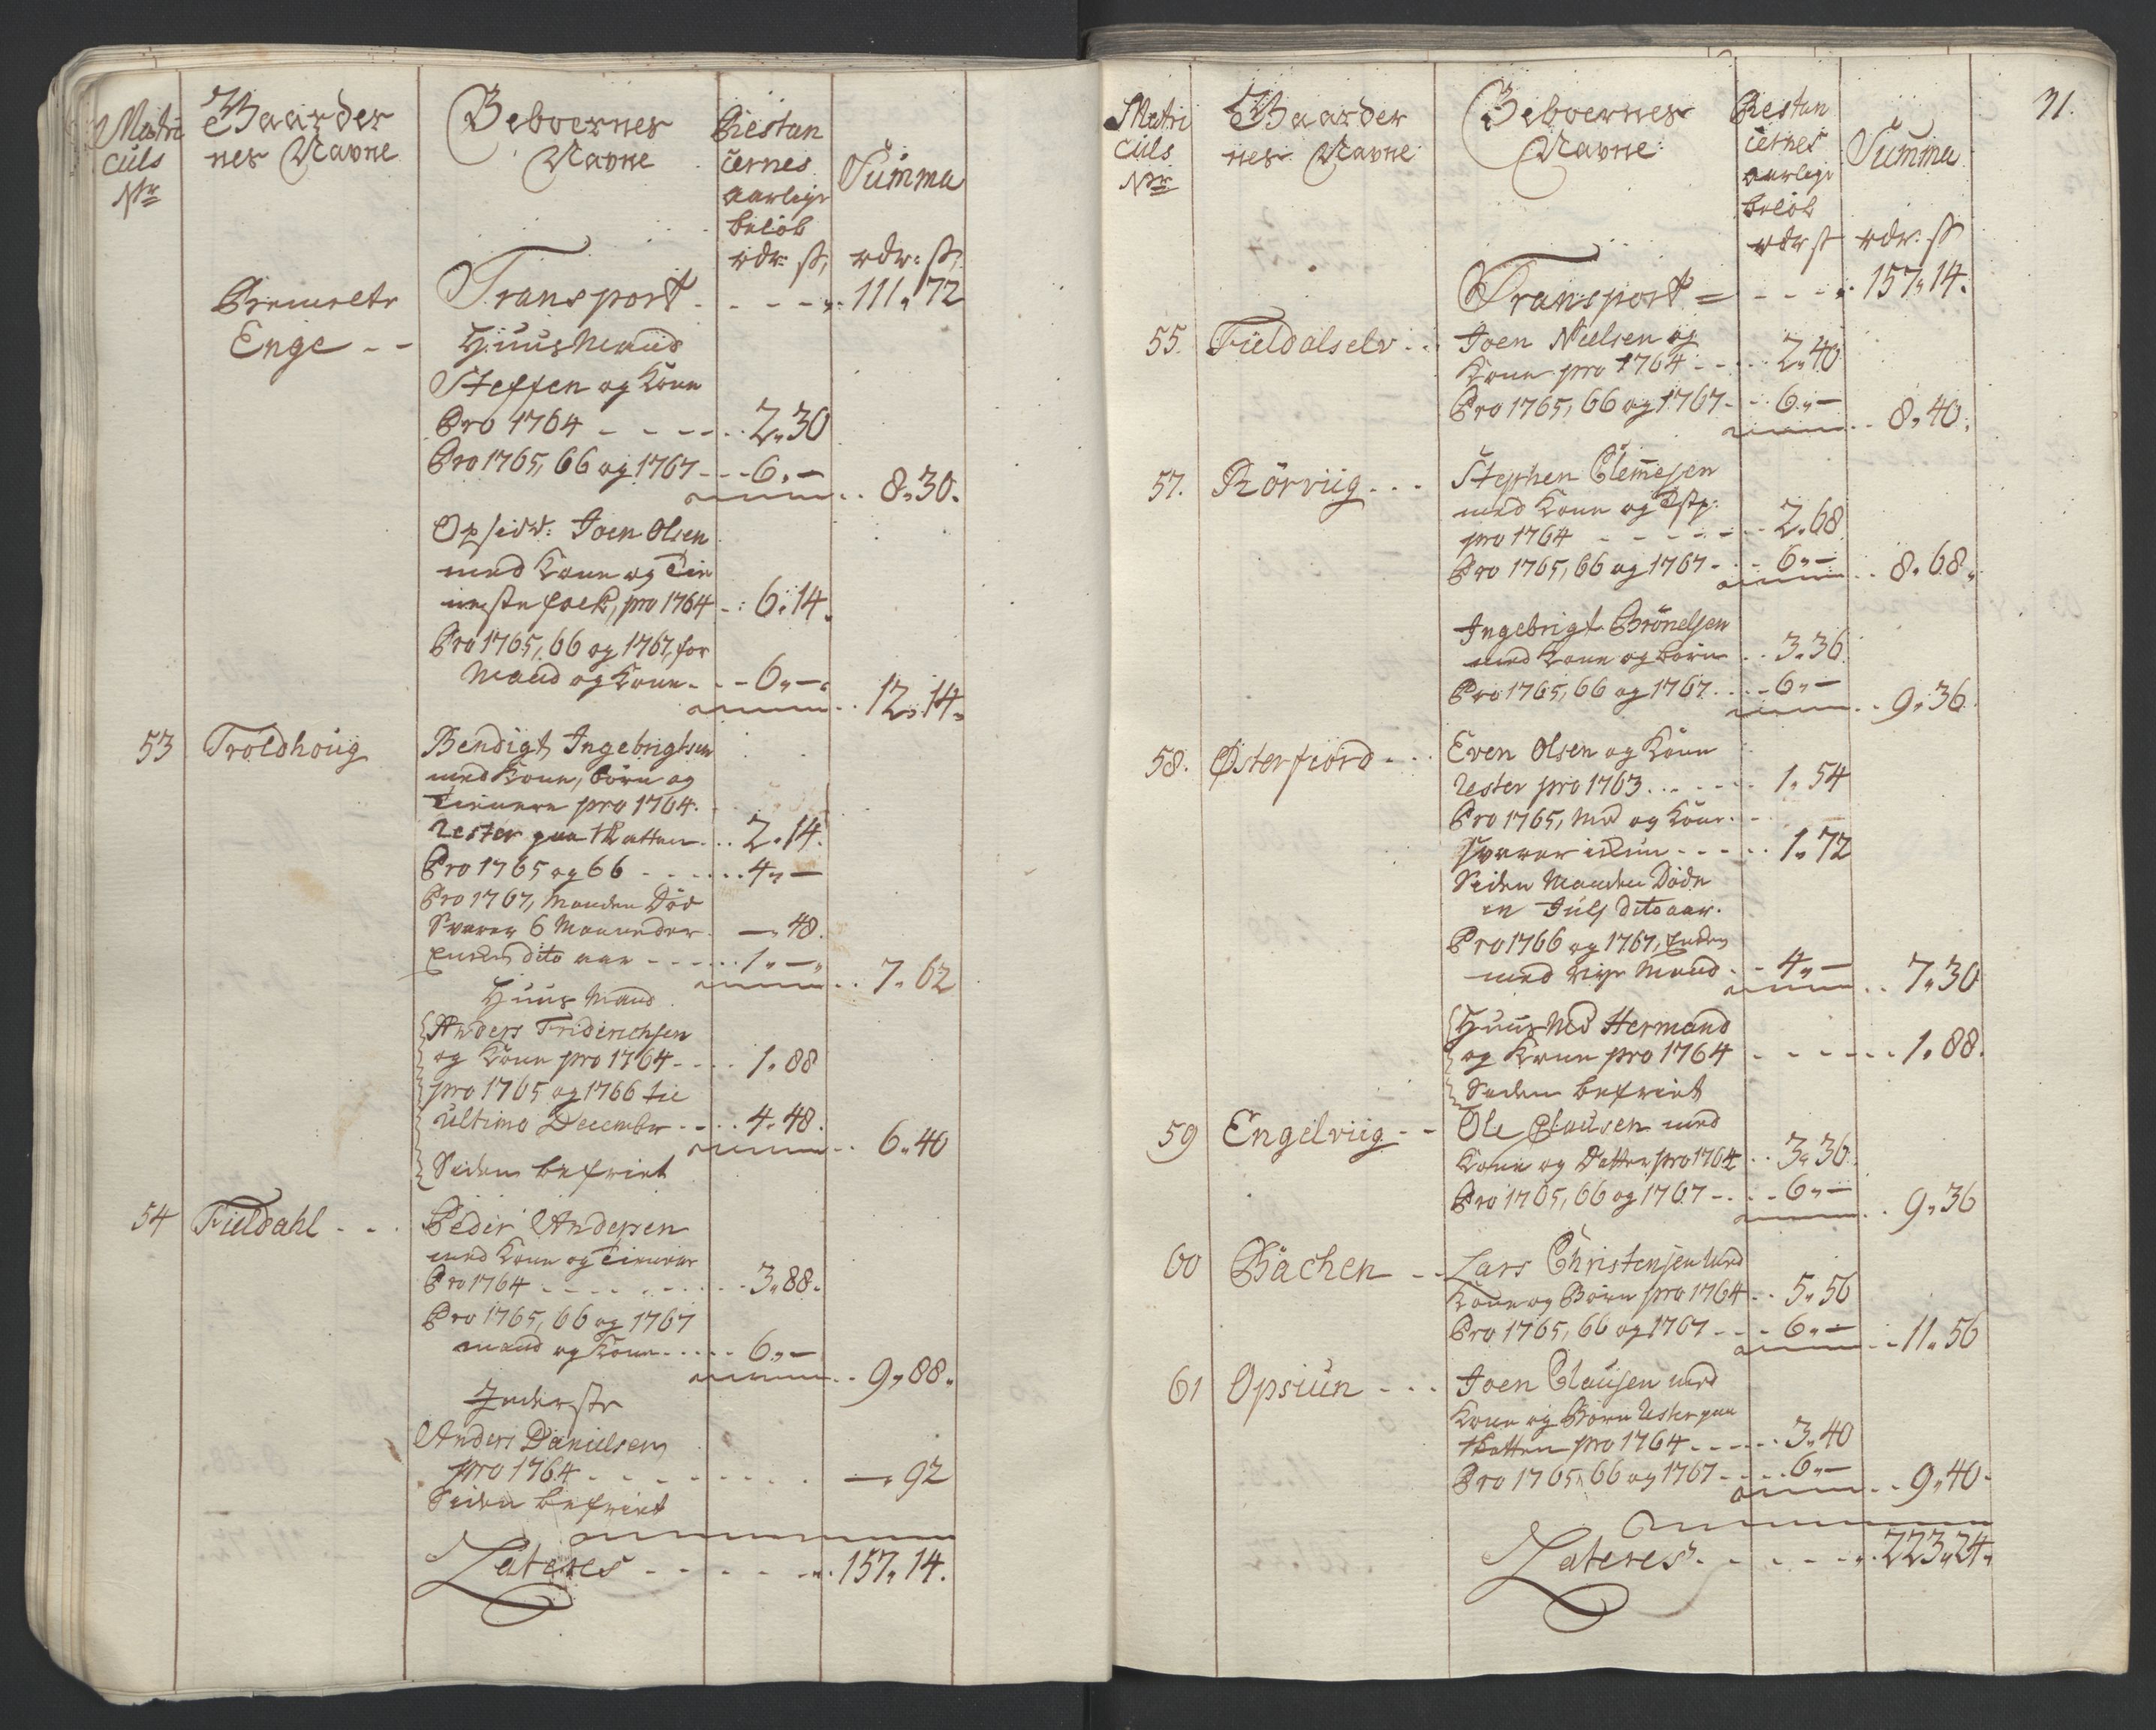 Matri
culs
Nr
Gaarder
nes Navne
Beboernes
Navne
Restan
cernes
aarlige
beløb
Summa
rdr: ß,
rdr: ß,
Transport - - - - 111,,72
Enge - -
HuusMand
Steffen og Kone
Pro 1764 - - - - - 2,,30
Pro 1765, 66 og 1767 - - - 6,,— 8,,30.
Opsidd: Joen Olsen
med Kone og Tie
nestefolk, pro 1764 - : 6,,14.
Pro 1765, 66 og 1767, for
Mand og Kone - - - 6,,— 12,,14.
53 Troldhoug
Bendigt Ingebrigtsen
med Kone, børn og
Tienere pro 1764.
Rester paa Skatten . . 2,,14.
Pro 1765 og 66 - - - - - 4,,—
Pro 1767, Manden Død
Svarer 6 Maaneder. —,,48.
Enken dito aar - - - - - 1,,— 7,,62
Huus Mand
Anders Friderichsen
og Kone pro 1764 - - - - 1,,88
pro 1765 og 1766 til
ultimo December - - - 4,,48. 6,,40
Siden befriet
54 Fieldahl - - .
Peder Andersen
med Kone og Tienere
Pro 1764 - - - - - - - 3,,88.
Pro 1765, 66 og 1767
mand og Kone - - - - - 6,,— 9,,88.
Inderste
Anders Danielsen
pro 1764 - - - - - - - —,,92
Siden befriet
Lateres - - - - - - 157,,14.
31.
Matri
culs
Nr
Gaarder
nes Navne
Beboernes
Navne
Restan
cernes
aarlige
beløb
Summa
rdr ß
rdr: ß
Transport = - - - - 157,,14.
55. Fieldalselv . . .
Joen Nielsen og
Kone pro 1764 - - - - 2,,40
Pro 1765, 66 og 1767 - - 6,,— 8,,40.
57. Rörviig - - -
Stephen Clemesen
med Kone og
pro 1764 - - - - - - 2,,68
Pro 1765, 66 og 1767 - - - 6,,— 8,,68.
Ingebrigt Brönelsen
med Kone og børn - - 3,,36.
Pro 1765, 66 og 1767 - - - 6,,— 9,,36.
58. Østerfiord - - .
Even Olsen og Kone
Rester pro 1763 - - - - - 1,,54
Pro 1765, Md og Kone - -
svarer ickun - - - - - 1,,72
Siden Manden Døde
in July dito aar.
Pro 1766 og 1767, Enken
med nye Mand - - 4,,— 7,,30
Huus Md Hermand
og Kone pro 1764 - - - - - - 1,,88.
Siden befriet
59 Engelviig - -
Ole Clausen med
Kone og Datter pro 1764 - - 3,,36.
Pro 1765, 66 og 1767 - - - 6,,— 9,,36
60 Bachen - -
Lars Christensen med
Kone og Børn pro 1764 - - 5,,56
Pro 1765, 66 og 1767 - - - 6,,— 11,,56
61 Opsiun - - -
Joen Clausen med
Kone og Børn Rester paa
Skatten pro 1764 - - - - - 3,,40
Pro 1765, 66 og 1767 - - - - 6,,— 9,,40.
Lateres - - - - - - 223,,24.